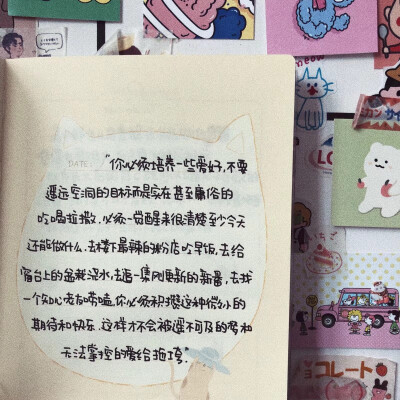 DATE:
"你必须培养一些爱好,不要
遥远空洞的目标而是实在甚至庸俗的
吃喝拉撒,必须一觉醒来很清楚至少今天
还能做什么.去楼下最辣的粉店吃早饭,去给
窗台上的盆栽浇水,去追一集刚更新的新番,去找
一个知心老友唠嗑.你必须积攒这种微小的
期待和快乐.这样才不会被遥不可及的梦和
无法掌控的爱给拖垮."
meow
コレート